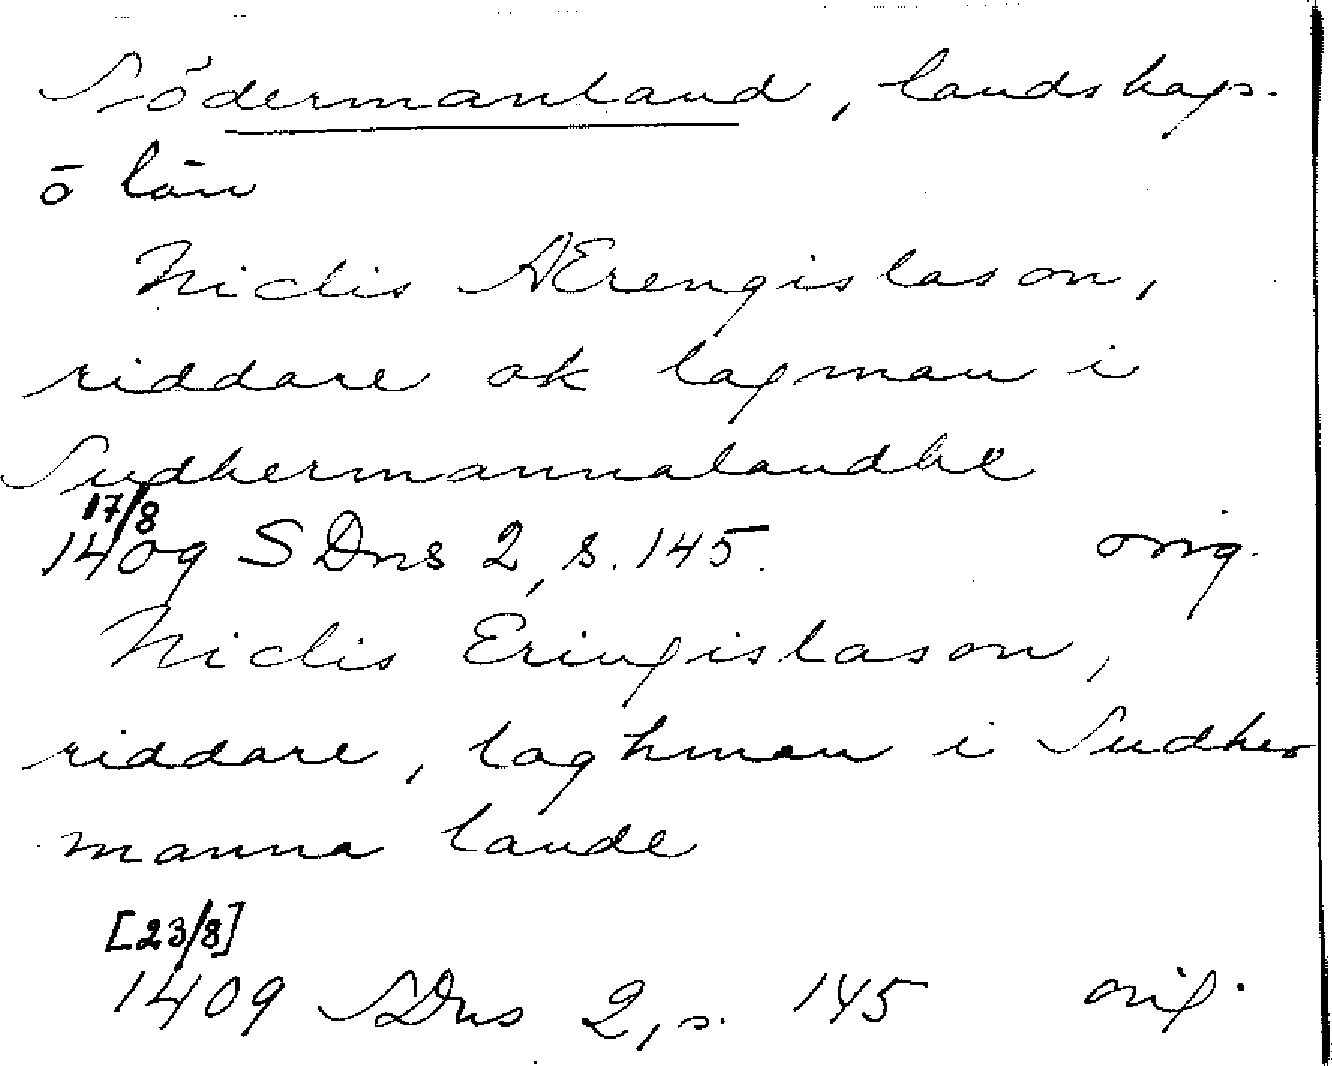 Södermanland, landskap.
ō län
Niclis AErengislason,
riddare ok lagman i
Sudhermannalandhe
17/8
1409 SDns 2, s. 145. orig.
Niclis Eringislason,
riddare, laghman i Sudher
manna lande
[23/8]
1409 SDns 2, s. 145 orig.